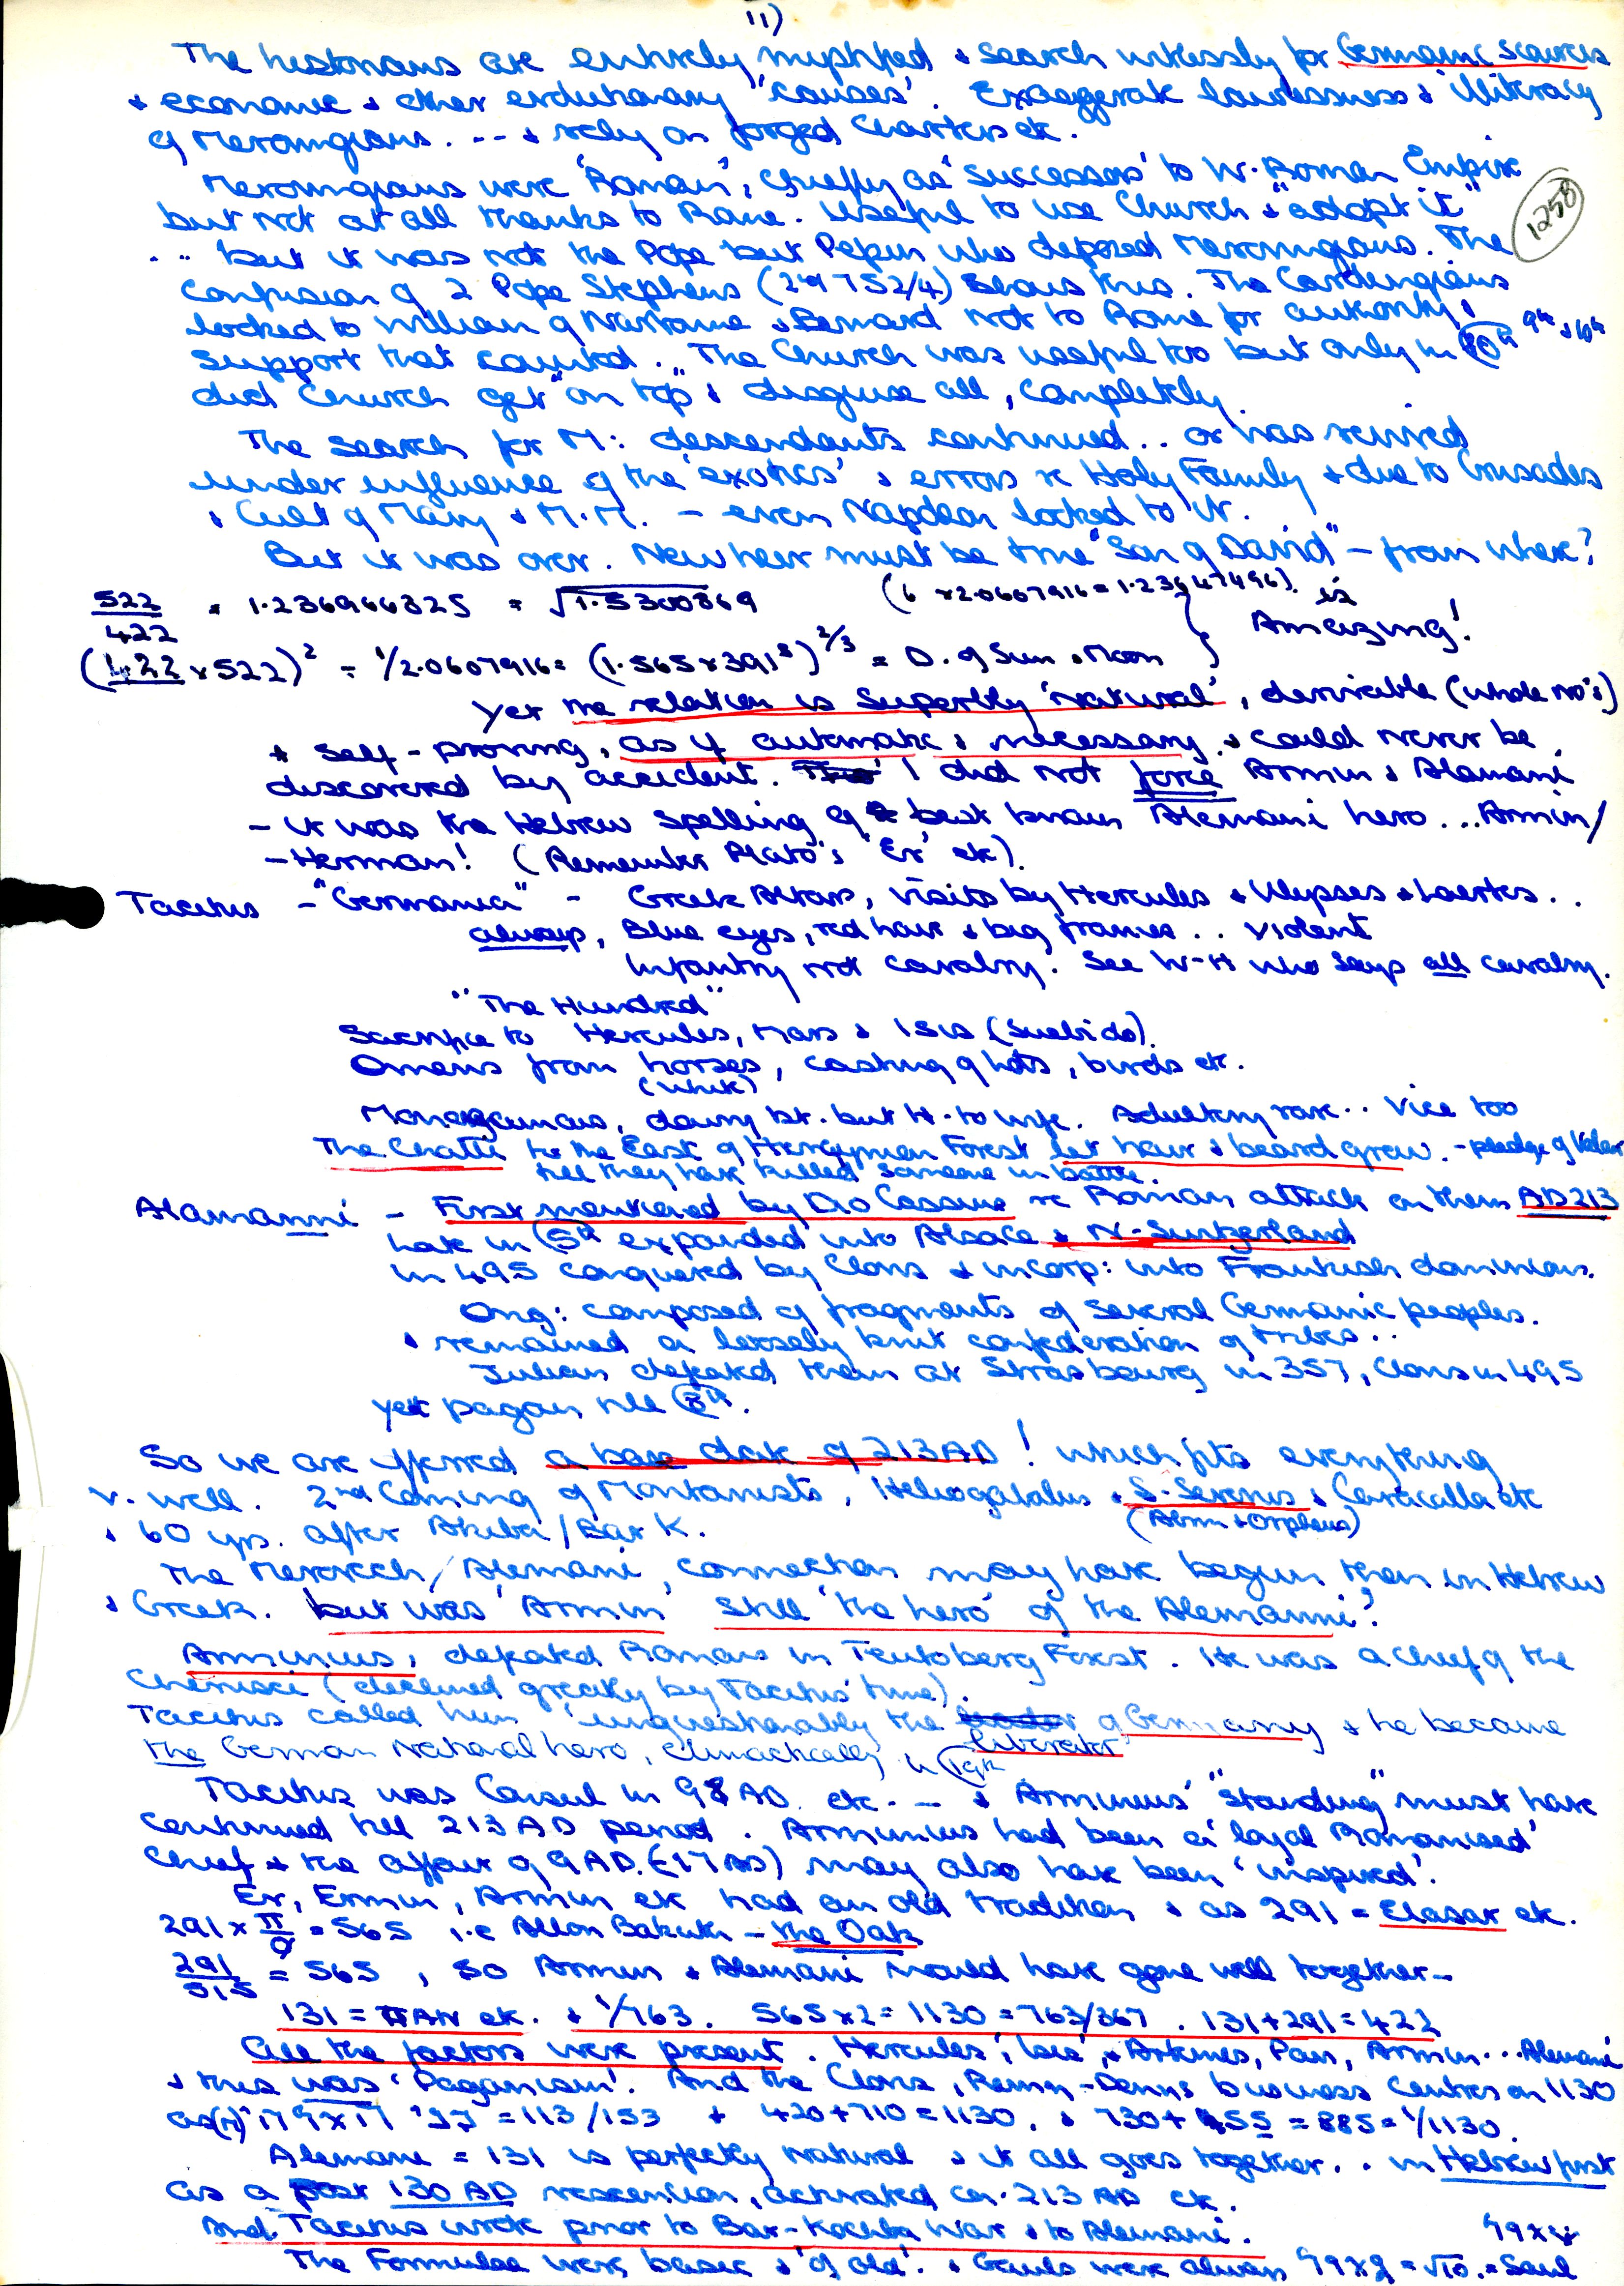 11)
The historians are entirely mystified & search witlessly for Germanic sources
& economic & other evolutionary "causes". Exaggerate lawlessness & illiteracy
of Merovingians. --- & rely on forged Charters etc.
Merovingians were 'Roman', chiefly as 'successors' to W. Roman Empire
but not at all thanks to Rome. Useful to use Church & "adopt it"
1258
... but it was not the Pope but Pepin who deposed Merovingians. The
confusion of 2 Pope Stephens (2nd 752/4) shows this. The Carolingians
looked to William of Narbonne & Bernard not to Rome for authority &
support that counted. The Church was useful too but only in 9th & 10th
did Church get "on top" & disguise all, completely.
The search for M: descendants continued.. or was revived
under influence of the 'exotics' & errors re Holy Family & due to Crusades
& Cult of Mary & M.M. - even Napoleon looked to it.
But it was over. New heir must be true "Son of David" - from where?
522/422 = 1.236966825 = √1.5300869 (6 x 2.0607916 = 1.23647496).
Amazing!
(422 x 522)² = 1/2.0607916 = (1.565 x 391²)^2/3 = D. of Sun & Moon
Yet the relation is superbly 'natural', derivable (whole no's)
& self-proving, as if automatic & necessary & could never be
discovered by accident. I did not force Armin & Alemani
- it was the Hebrew spelling of best known Alemani hero ... Armin/
- Herman! (Remember Plato's 'Er' etc).
Tacitus - "Germania" - Greek Altars, visits by Hercules & Ulysses & Laertes..
always, Blue eyes, red hair & big frames .. violent
Infantry not cavalry. See W-H who says all cavalry.
"The Hundred"
Sacrifice to Hercules, Mars & Isis (Suebi do).
Omens from horses, casting of lots, birds etc.
(white)
Monogamous, dowry bt. but H. to wife. Adultery rare .. Vice too
The Chatti to the East of Hercynian Forest let hair & beard grow. - pledge of Valour
till they have killed someone in battle.
Alamanni - First mentioned by Dio Cassius re Roman attack on them AD 213
late in 5th expanded into Alsace & N. Switzerland
in 495 conquered by Clovis & incorp: into Frankish dominions.
Orig: composed of fragments of several Germanic peoples.
& remained a loosely knit confederation of tribes..
Julian defeated them at Strasbourg in 357, Clovis in 495
yet pagan till
So we are offered a base date of 213 AD! which fits everything
v. well. 2nd Coming of Montanists, Heliogabalus & S. Severus & Caracalla etc
(Abrm & Orpheus)
& 60 yrs. after Akiba/Bar K.
The Merovech/Alemani, connection may have begun then in Hebrew
& Greek. but was 'Armin' still 'the hero' of the Alemanni?
Arminius, defeated Romans in Teutoberg Forest. He was a chief of the
Cherusci (declined greatly by Tacitus' time).
Tacitus called him 'unquestionably the liberator of Germany & he became
the German National hero, climactically in 19th
Tacitus was Consul in 98 AD. etc. -- & Arminius' "standing" must have
continued till 213 AD period. Arminius had been a 'loyal Romanised'
Chief & the affair of 9 AD. (-17 AD) may also have been 'inspired'.
Er, Ermin, Armin etc had an old tradition & as 291 = Elasar etc.
291 x π/φ = 565 i.e Allon Bakuth - the Oak
291/515 = 565, so Armin & Alemani would have gone well together -
131 = PAN etc. & 1/763. 565 x 2 = 1130 = 763/367. 131 + 291 = 422
All the factors were present. Hercules', Isis', & Artemes, Pan, Armin ... Alemani
& this was 'Paganism'. And the Clovis, Remy - Denys business centres on 1130
= 113/153 & 420 + 710 = 1130. & 730 + 155 = 885 = 1/1130.
Alemani = 131 is perfectly natural & it all goes together. . in Hebrew first
as a post 130 AD rescension, activated ca. 213 AD etc.
And. Tacitus wrote prior to Bar-Kochba War & to Alemani.
The Formulae were basic & 'of old'. & Gauls were always = √10. = Saul